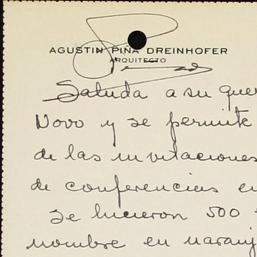 AGUSTIN PIÑA DREINHOFER
ARQUITECTO
Saluda a su que
Novo y se permite
de las invitaciones
de conferencias en
se hicieron 500
nombre en naranj